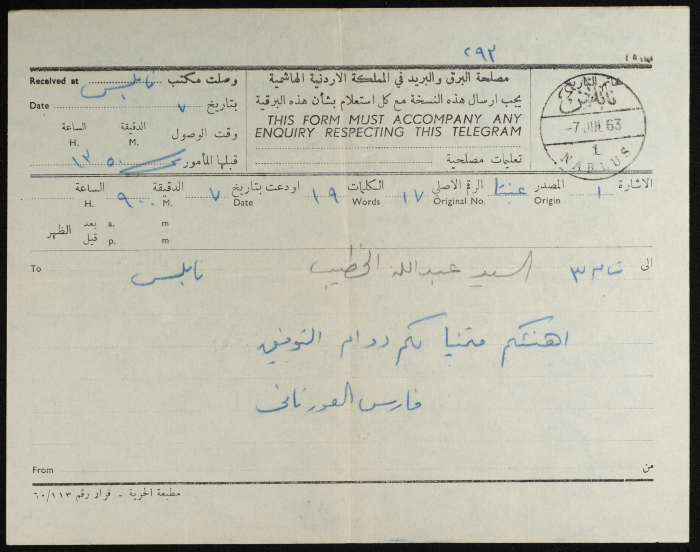 ٢٩٣
Received at نابلس وصلت مكتب
مصلحة البرق والبريد في المملكة الاردنية الهاشمية
خاتم التاريخ
نابلس
-7 JUL 63
1
NABLUS
Date ٧ بتاريخ
يجب ارسال هذه النسخة مع كل استعلام بشأن هذه البرقية
الساعة الدقيقة وقت الوصول
H. M.
THIS FORM MUST ACCOMPANY ANY
ENQUIRY RESPECTING THIS TELEGRAM
١٣٥٠ قبلها المأمور
تعليمات مصلحية
الاشارة ١ المصدر عنبتا الرقم الاصلي ١٧ الكلمات ١٩ اودعت بتاريخ ٧ الدقيقة ٩٠٠ الساعة
Origin Original No. Words Date M. H.
بعد a. m
الظهر
قبل p. m
To نابلس السيد عبدالله الخطيب الى
اهنئكم متمنيا لكم دوام التوفيق
فارس
From من
مطبعة الحرية - قرار رقم ٦٠/١١٣